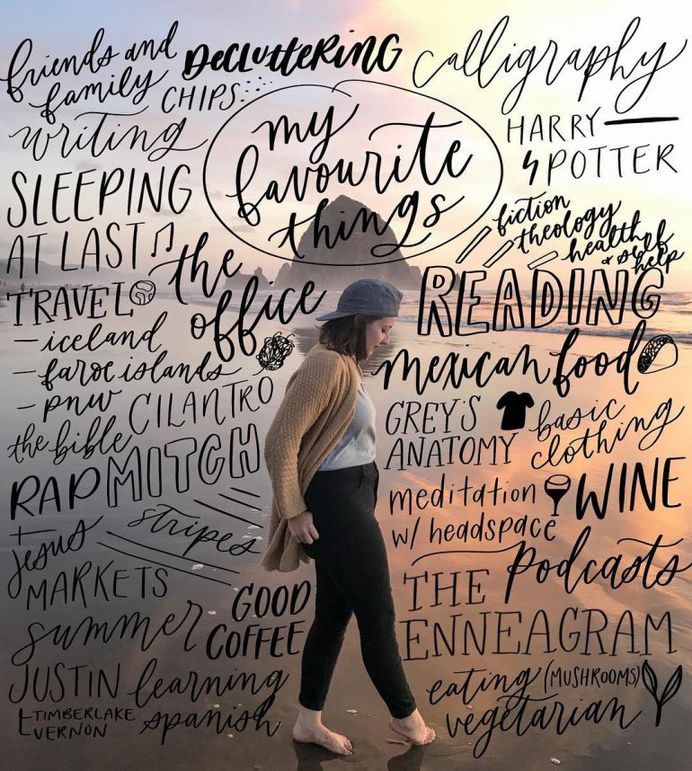 friends and family
DECLUTTERING
calligraphy
CHIPS
writing
my favourite things
HARRY POTTER
SLEEPING
AT LAST
the office
fiction
theology
health & self help
READING
TRAVEL
- iceland
- faroe islands
- pnw
CILANTRO
mexican food
the bible
GREY'S ANATOMY
basic clothing
RAP
MITCH
meditation w/ headspace
WINE
stripes
jesus
podcasts
MARKETS
GOOD COFFEE
THE ENNEAGRAM
summer
JUSTIN
TIMBERLAKE
VERNON
learning spanish
eating (MUSHROOMS) vegetarian